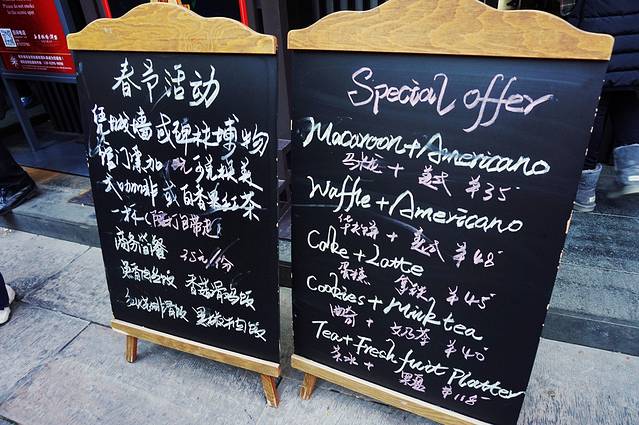 Please do not smoke
春节活动
凭城墙或碑林博物
馆门票加 元可换美
式咖啡或百香果红茶
一杯(限打包带走)
商务简餐 35元/份
鱼香肉丝饭 香菇滑鸡饭
红烧排骨饭 黑椒牛柳饭
Special offer
Macaroon+Americano
马卡龙 + 美式 ¥35
Waffle + Americano
华夫饼 + 美式 ¥48
Cake + Latte
蛋糕 拿铁 ¥45
Cookies + Milk tea
曲奇 + 奶茶 ¥40
Tea + Fresh fruit Platter
茶水 + 果盘 ¥118